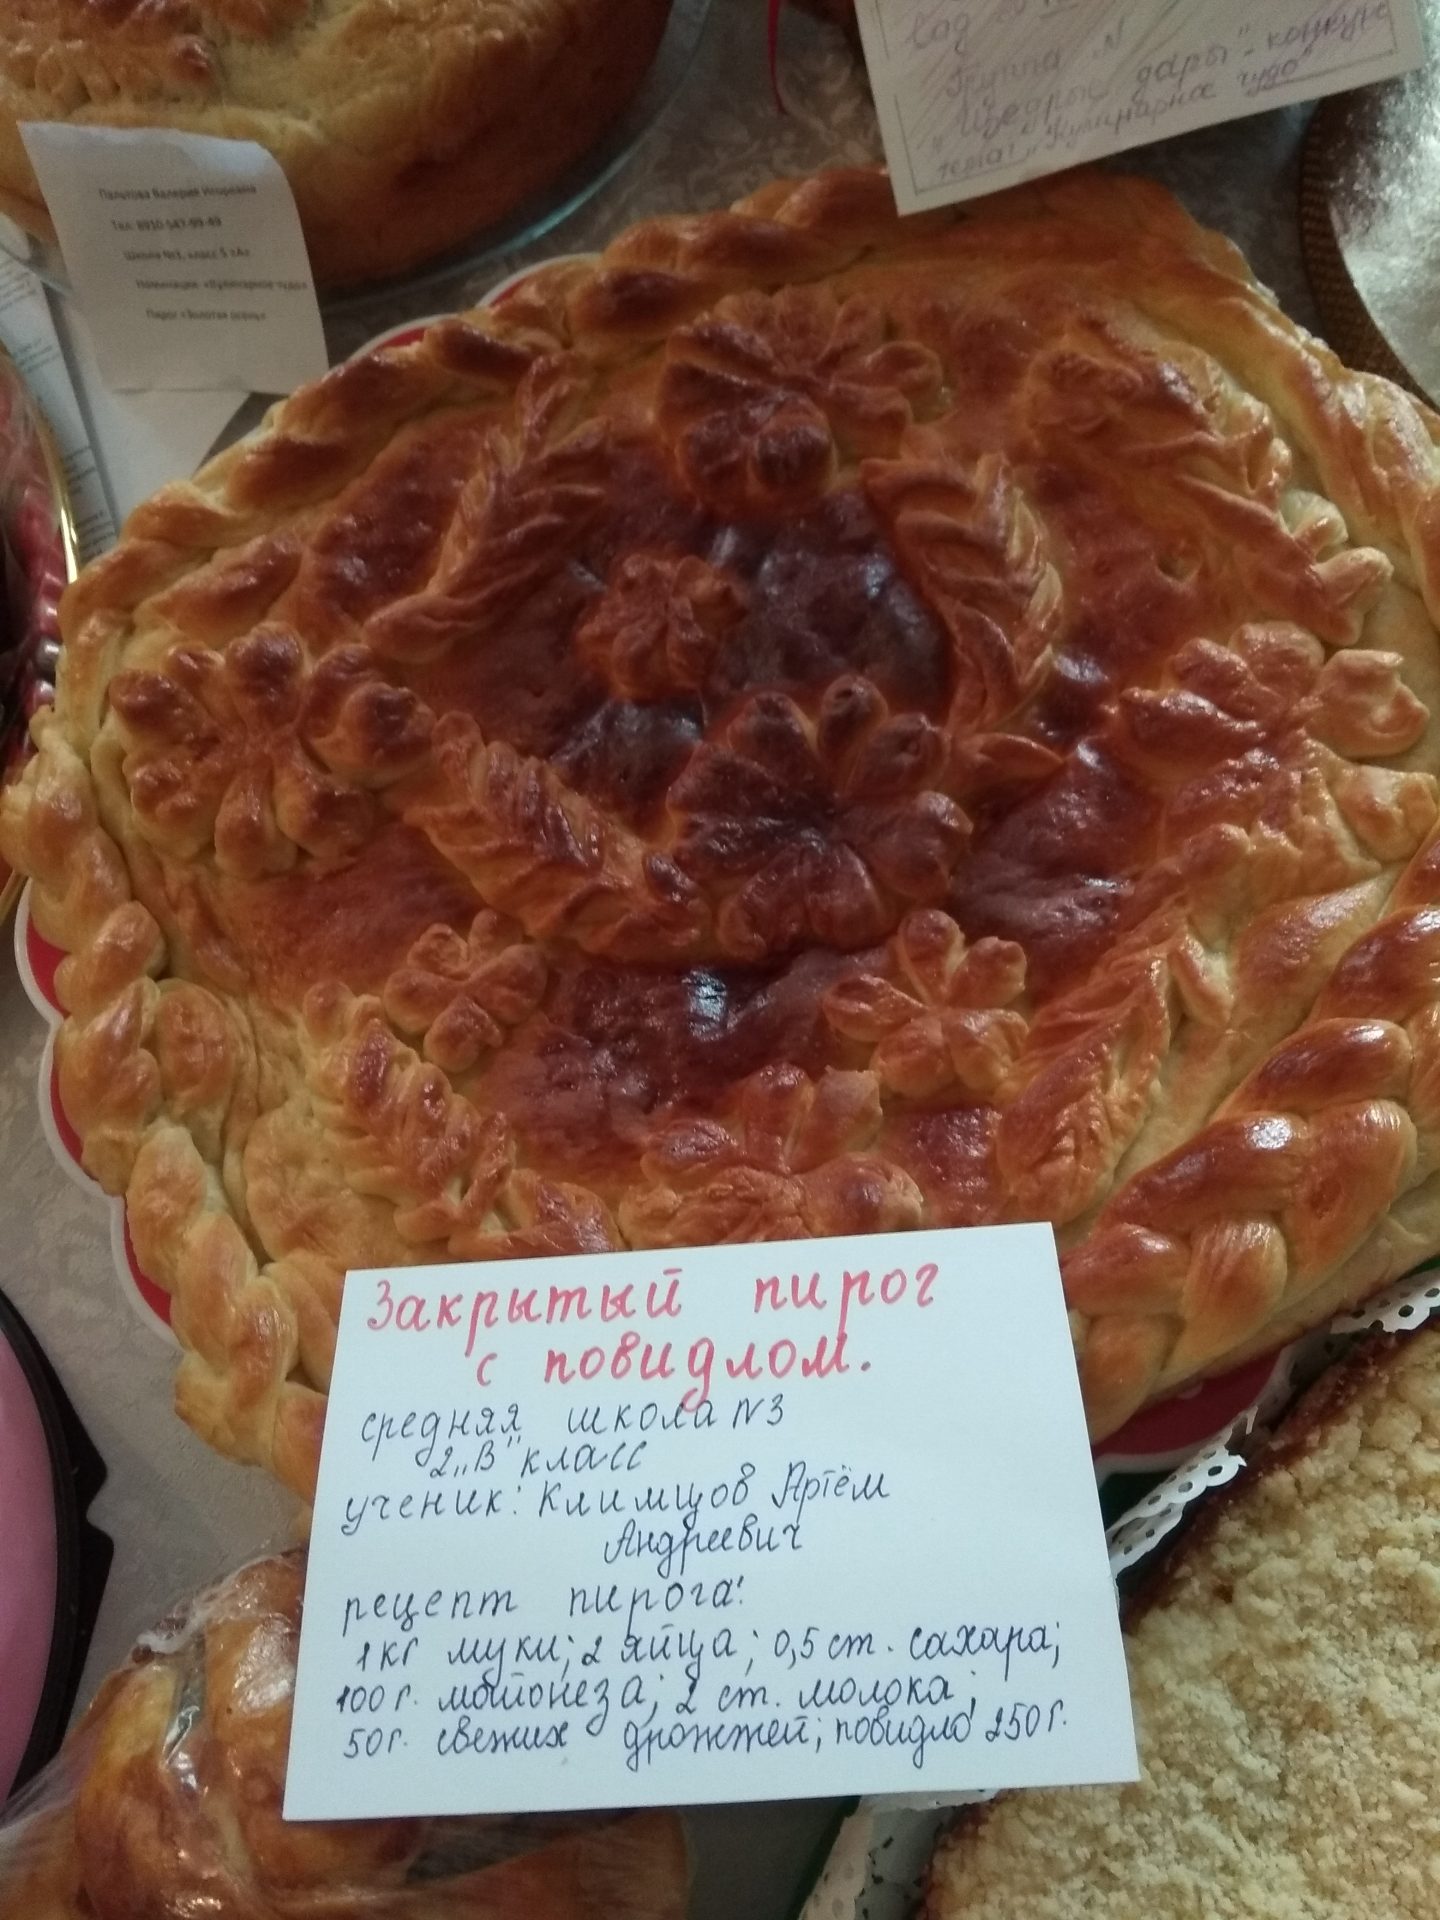 Сад №
Группа №
"Щедрые дары" - конкурс
тема: "Кулинарное чудо"
Пальгова Валерия Игоревна
Тел: 8930-547-99-49
Школа №3, класс 5 «А»
Номинация: «Кулинарное чудо»
Пирог «Золотая осень»
Закрытый пирог
с повидлом.
средняя школа №3
2 „В" класс
ученик: Климцов Артём
Андреевич
рецепт пирога:
1кг муки; 2 яйца; 0,5 ст. сахара;
100 г. майонеза; 2 ст. молока;
50 г. свежих дрожжей; повидло 250 г.